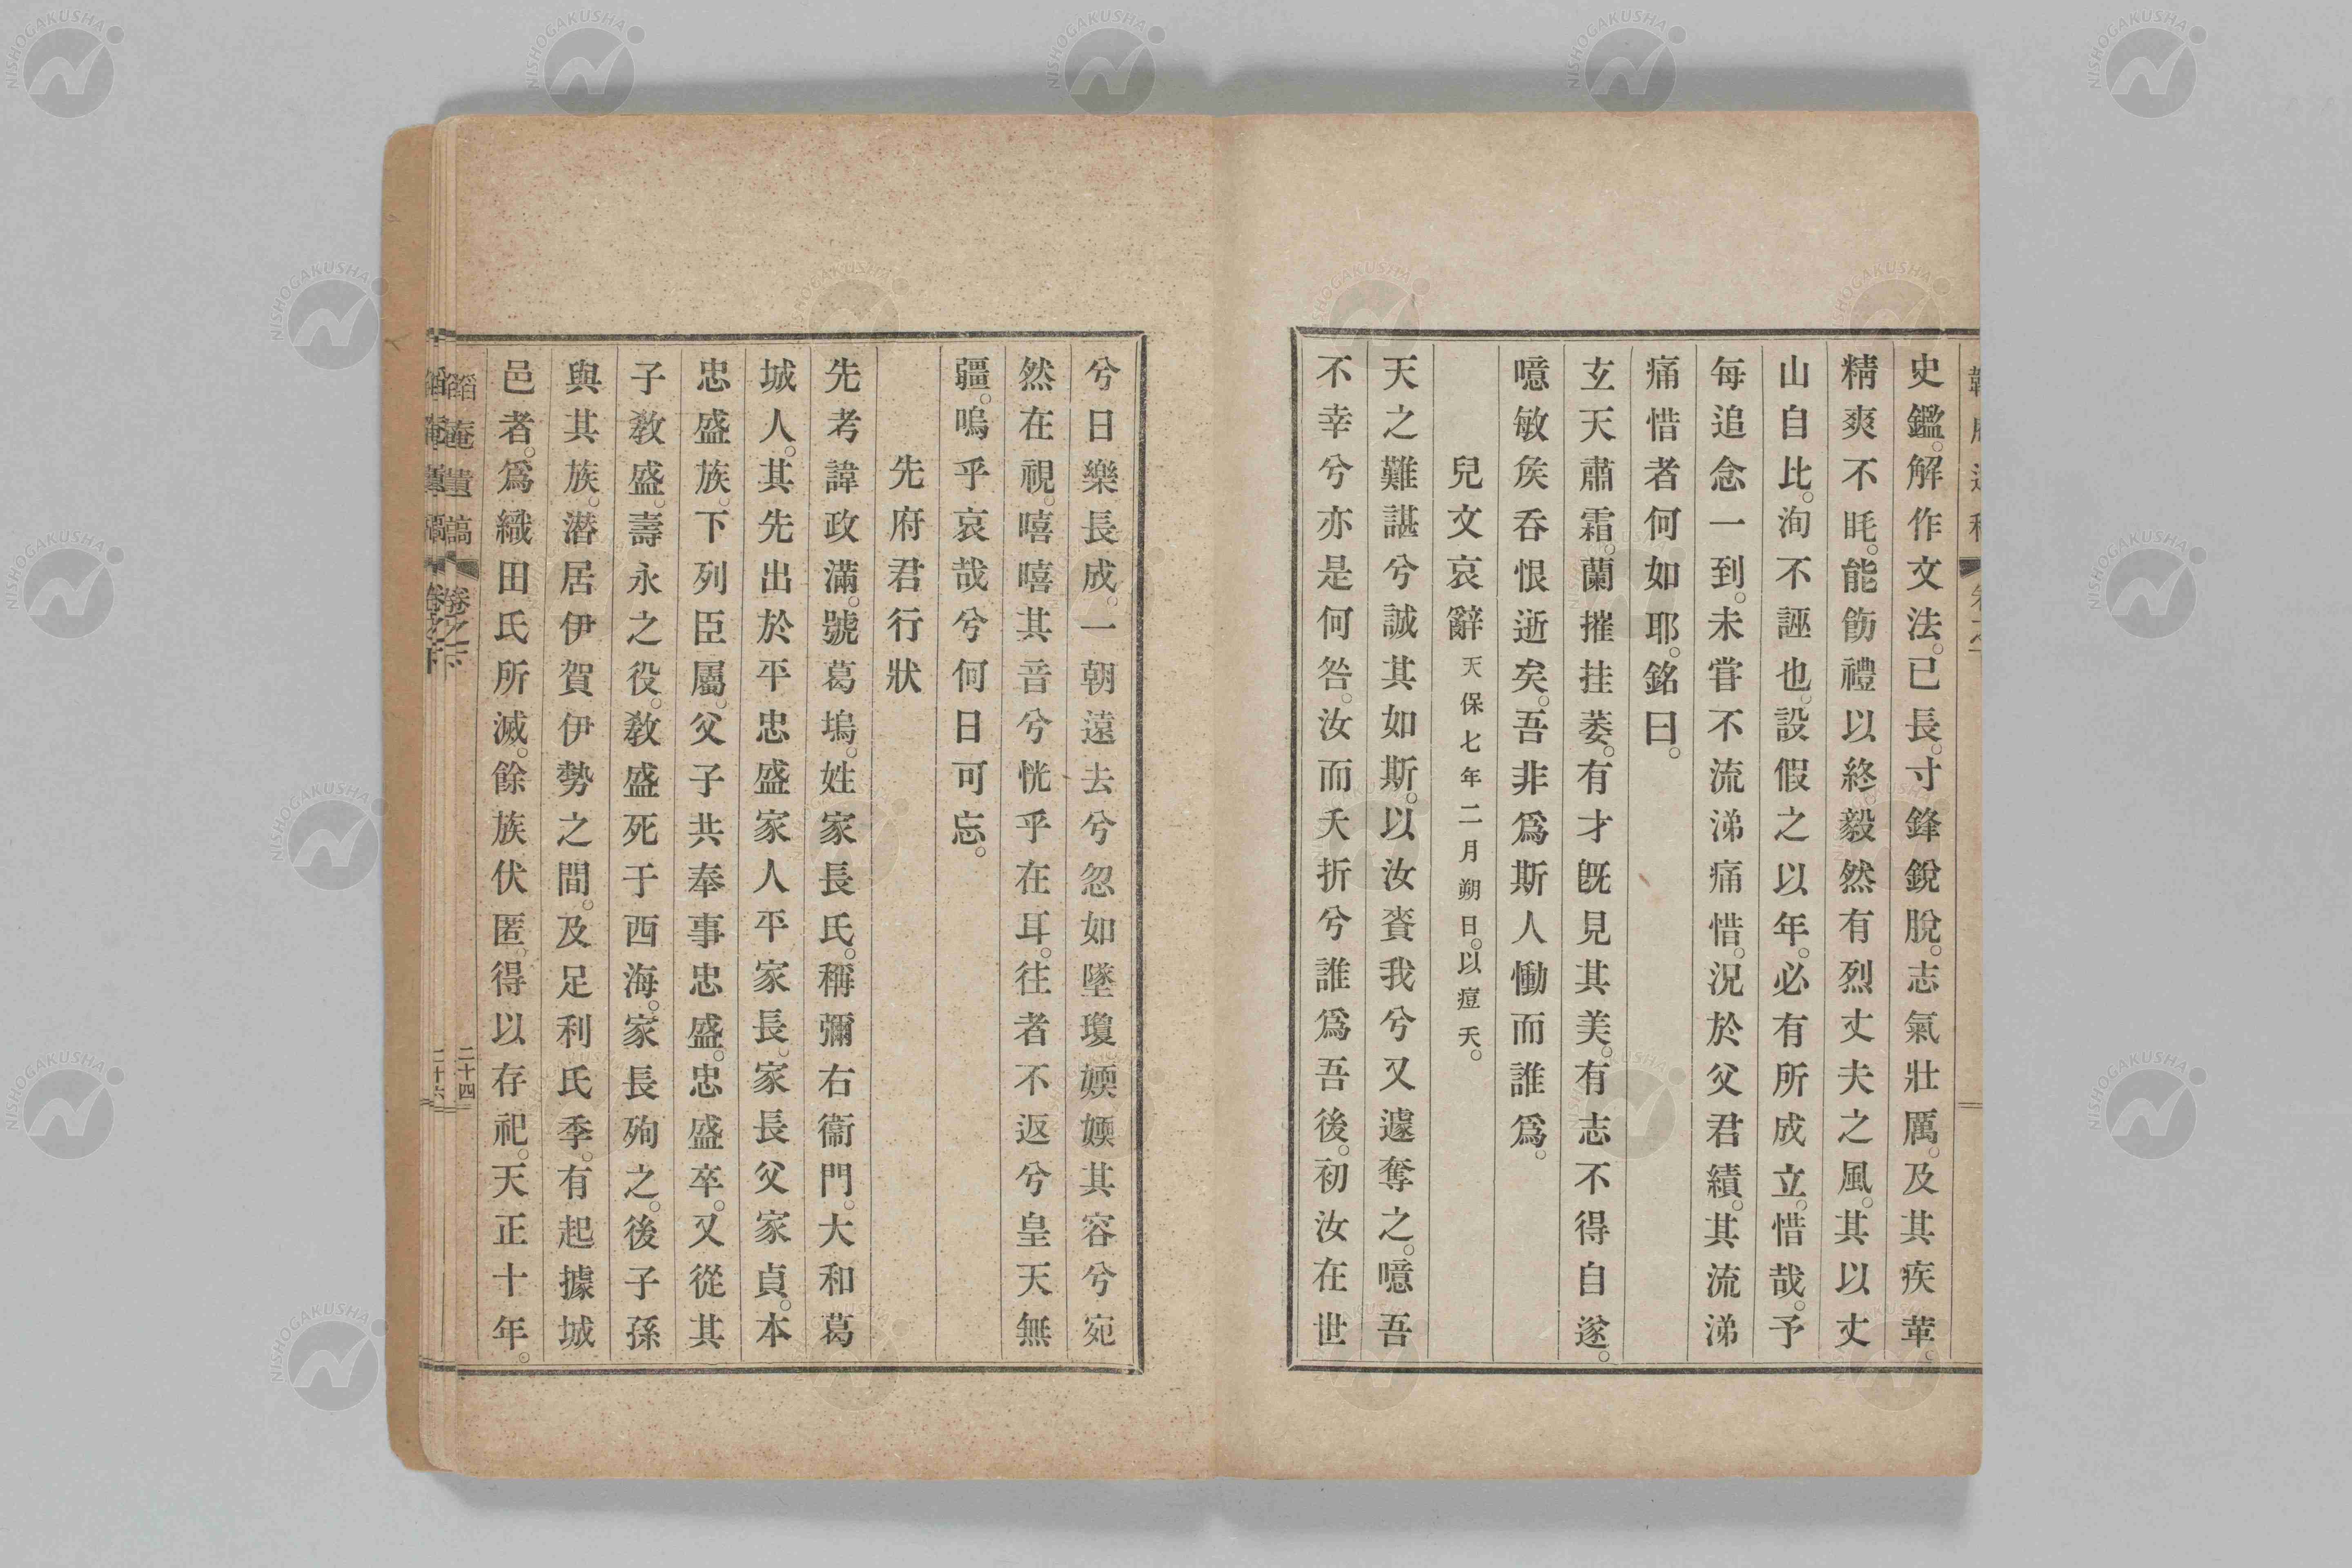 史鑑。解作文法。已長。寸鋒銳脫。志氣壯厲。及其疾革。
精爽不眊。能飭禮以終毅然有烈丈夫之風。其以丈
山自比。洵不誣也。設假之以年。必有所成立。惜哉。予
每追念一到。未嘗不流涕痛惜。況於父君績。其流涕
痛惜者何如耶。銘曰。
玄天肅霜。蘭摧挂萎。有才既見其美。有志不得自遂。
噫敏矦呑恨逝矣。吾非爲斯人慟而誰爲。
兒文哀辭天保七年二月朔日。以痘夭。
天之難諶兮誠其如斯。以汝賚我兮又遽奪之。噫吾
不幸兮亦是何咎。汝而夭折兮誰爲吾後。初汝在世
兮日樂長成。一朝遠去兮忽如墜瓊。㜻㜻其容兮宛
然在視。嘻嘻其音兮恍乎在耳。往者不返兮皇天無
疆。嗚乎哀哉兮何日可忘。
先府君行狀
先考諱政滿。號葛塢。姓家長氏。稱彌右衞門。大和葛
城人。其先出於平忠盛家人平家長。家長父家貞。本
忠盛族。下列臣屬。父子共奉事忠盛。忠盛卒。又從其
子敎盛。壽永之役。敎盛死于西海。家長殉之。後子孫
與其族。潛居伊賀伊勢之間。及足利氏季。有起據城
邑者。爲織田氏所滅。餘族伏匿。得以存祀。天正十年。
韜庵遺稿 卷之下
二十四
二十六
NISHOGAKUSHA